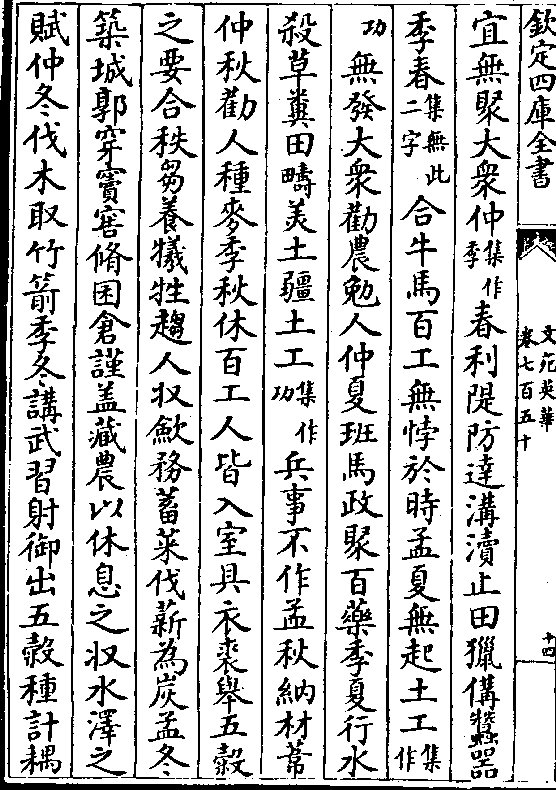 欽定四庫全書
文苑英華
卷七百五十
十四
宜無聚大衆仲集作季春利隄防達溝瀆止田獵備蠶器
季春集無此二字合牛馬百工無悖於時孟夏無起土工集作
功無發大衆勸農勉人仲夏班馬政聚百藥季夏行水
殺草糞田疇美土疆土工集作功兵事不作孟秋納材葦
仲秋勸人種麥季秋休百工人皆入室具衣裘舉五榖
之要合秩芻養犧牲趨人収斂務蓄菜伐薪為炭孟冬
築城郭穿竇窖脩囷倉謹盖藏農以休息之収水澤之
賦仲冬伐木取竹箭季冬講武習射御出五榖種計耦